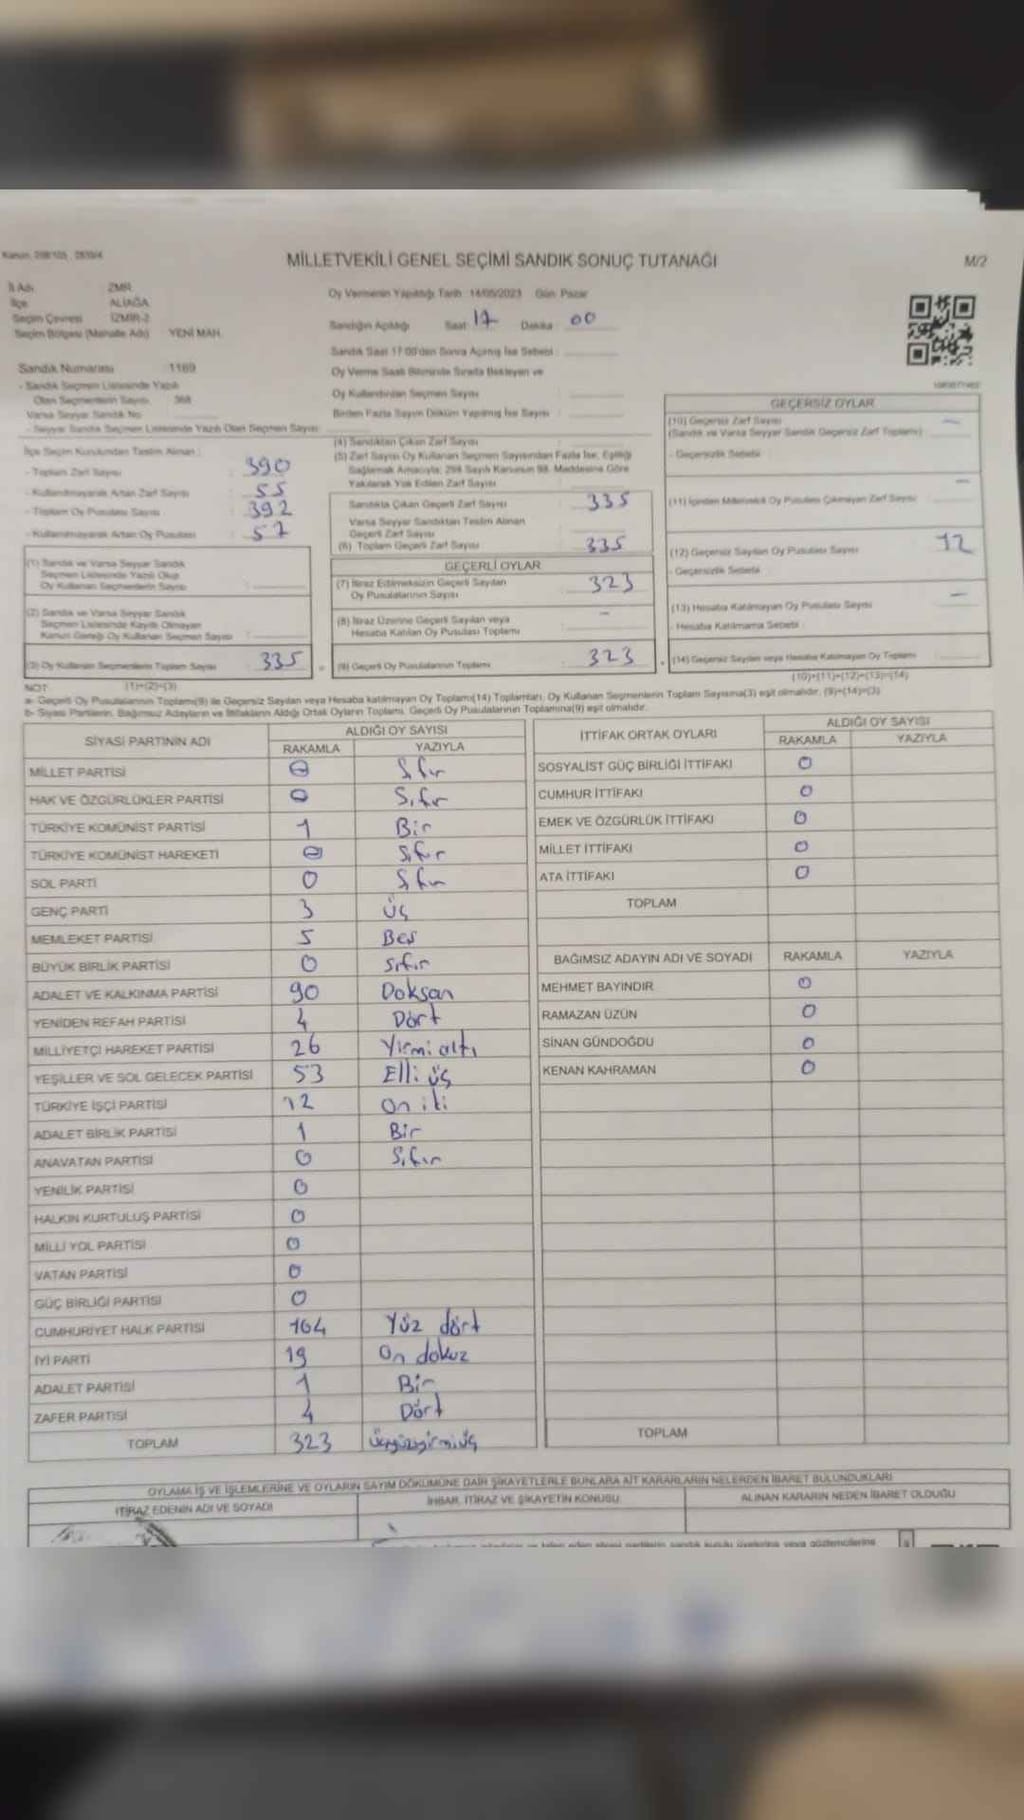 MİLLETVEKİLİ GENEL SEÇİMİ SANDIK SONUÇ TUTANAĞI
M/2
İl Adı : İZMİR
İlçe : ALİAĞA
Seçim Çevresi : İZMİR-2
Seçim Bölgesi (Mahalle Adı) : YENİ MAH.
Oy Vermenin Yapıldığı Tarih : 14/05/2023 Gün: Pazar
Sandığın Açıldığı Saat : 17 Dakika : 00
Sandık Saat 17:00'den Sonra Açılmış İse Sebebi :
Sandık Numarası : 1169
- Sandık Seçmen Listesinde Yazılı
Olan Seçmenlerin Sayısı : 368
Varsa Seyyar Sandık No :
- Seyyar Sandık Seçmen Listesinde Yazılı Olan Seçmen Sayısı :
Oy Verme Saati Bitiminde Sırada Bekleyen ve
Oy Kullandırılan Seçmen Sayısı :
Birden Fazla Sayım Döküm Yapılmış İse Sayısı :
İlçe Seçim Kurulundan Teslim Alınan :
- Toplam Zarf Sayısı : 390
- Kullanılmayarak Artan Zarf Sayısı : 55
- Toplam Oy Pusulası Sayısı : 392
- Kullanılmayarak Artan Oy Pusulası : 57
(1) Sandık ve Varsa Seyyar Sandık
Seçmen Listesinde Yazılı Olup
Oy Kullanan Seçmenlerin Sayısı :
(2) Sandık ve Varsa Seyyar Sandık
Seçmen Listesinde Kayıtlı Olmayan
Kanun Gereği Oy Kullanan Seçmen Sayısı :
(3) Oy Kullanan Seçmenlerin Toplam Sayısı : 335
(4) Sandıktan Çıkan Zarf Sayısı :
(5) Zarf Sayısı Oy Kullanan Seçmen Sayısından Fazla İse, Eşitliği
Sağlamak Amacıyla; 298 Sayılı Kanunun 98. Maddesine Göre
Yakılarak Yok Edilen Zarf Sayısı :
Sandıkta Çıkan Geçerli Zarf Sayısı : 335
Varsa Seyyar Sandıktan Teslim Alınan
Geçerli Zarf Sayısı :
(6) Toplam Geçerli Zarf Sayısı : 335
GEÇERLİ OYLAR
(7) İtiraz Edilmeksizin Geçerli Sayılan
Oy Pusulalarının Sayısı : 323
(8) İtiraz Üzerine Geçerli Sayılan veya
Hesaba Katılan Oy Pusulası Toplamı : -
(9) Geçerli Oy Pusulalarının Toplamı : 323
GEÇERSİZ OYLAR
(10) Geçersiz Zarf Sayısı : -
(Sandık ve Varsa Seyyar Sandık Geçersiz Zarf Toplamı)
- Geçersizlik Sebebi :
(11) İçinden Milletvekili Oy Pusulası Çıkmayan Zarf Sayısı : -
(12) Geçersiz Sayılan Oy Pusulası Sayısı : 12
- Geçersizlik Sebebi :
(13) Hesaba Katılmayan Oy Pusulası Sayısı : -
- Hesaba Katılmama Sebebi :
(14) Geçersiz Sayılan veya Hesaba Katılmayan Oy Toplamı :
NOT : (1)+(2)=(3)
(10)+(11)+(12)+(13)=(14)
a- Geçerli Oy Pusulalarının Toplamı(9) ile Geçersiz Sayılan veya Hesaba katılmayan Oy Toplamı(14) Toplamları, Oy Kullanan Seçmenlerin Toplam Sayısına(3) eşit olmalıdır. (9)+(14)=(3)
b- Siyasi Partilerin, Bağımsız Adayların ve İttifakların Aldığı Ortak Oyların Toplamı, Geçerli Oy Pusulalarının Toplamına(9) eşit olmalıdır.
SİYASİ PARTİNİN ADI ALDIĞI OY SAYISI
RAKAMLA YAZIYLA
MİLLET PARTİSİ 0 Sıfır
HAK VE ÖZGÜRLÜKLER PARTİSİ 0 Sıfır
TÜRKİYE KOMÜNİST PARTİSİ 1 Bir
TÜRKİYE KOMÜNİST HAREKETİ 0 Sıfır
SOL PARTİ 0 Sıfır
GENÇ PARTİ 3 Üç
MEMLEKET PARTİSİ 5 Beş
BÜYÜK BİRLİK PARTİSİ 0 Sıfır
ADALET VE KALKINMA PARTİSİ 90 Doksan
YENİDEN REFAH PARTİSİ 4 Dört
MİLLİYETÇİ HAREKET PARTİSİ 26 Yirmi altı
YEŞİLLER VE SOL GELECEK PARTİSİ 53 Elli üç
TÜRKİYE İŞÇİ PARTİSİ 12 On iki
ADALET BİRLİK PARTİSİ 1 Bir
ANAVATAN PARTİSİ 0 Sıfır
YENİLİK PARTİSİ 0
HALKIN KURTULUŞ PARTİSİ 0
MİLLİ YOL PARTİSİ 0
VATAN PARTİSİ 0
GÜÇ BİRLİĞİ PARTİSİ 0
CUMHURİYET HALK PARTİSİ 104 Yüz dört
İYİ PARTİ 19 On dokuz
ADALET PARTİSİ 1 Bir
ZAFER PARTİSİ 4 Dört
TOPLAM 323 Üçyüzyirmiüç
İTTİFAK ORTAK OYLARI ALDIĞI OY SAYISI
RAKAMLA YAZIYLA
SOSYALİST GÜÇ BİRLİĞİ İTTİFAKI 0
CUMHUR İTTİFAKI 0
EMEK VE ÖZGÜRLÜK İTTİFAKI 0
MİLLET İTTİFAKI 0
ATA İTTİFAKI 0
TOPLAM
BAĞIMSIZ ADAYIN ADI VE SOYADI RAKAMLA YAZIYLA
MEHMET BAYINDIR 0
RAMAZAN UZUN 0
SİNAN GÜNDOĞDU 0
KENAN KAHRAMAN 0
TOPLAM
OYLAMA İŞ VE İŞLEMLERİNE VE OYLARIN SAYIM DÖKÜMÜNE DAİR ŞİKAYETLERLE BUNLARA AİT KARARLARIN NELERDEN İBARET BULUNDUKLARI
İTİRAZ EDENİN ADI VE SOYADI İHBAR, İTİRAZ VE ŞİKAYETİN KONUSU ALINAN KARARIN NEDEN İBARET OLDUĞU